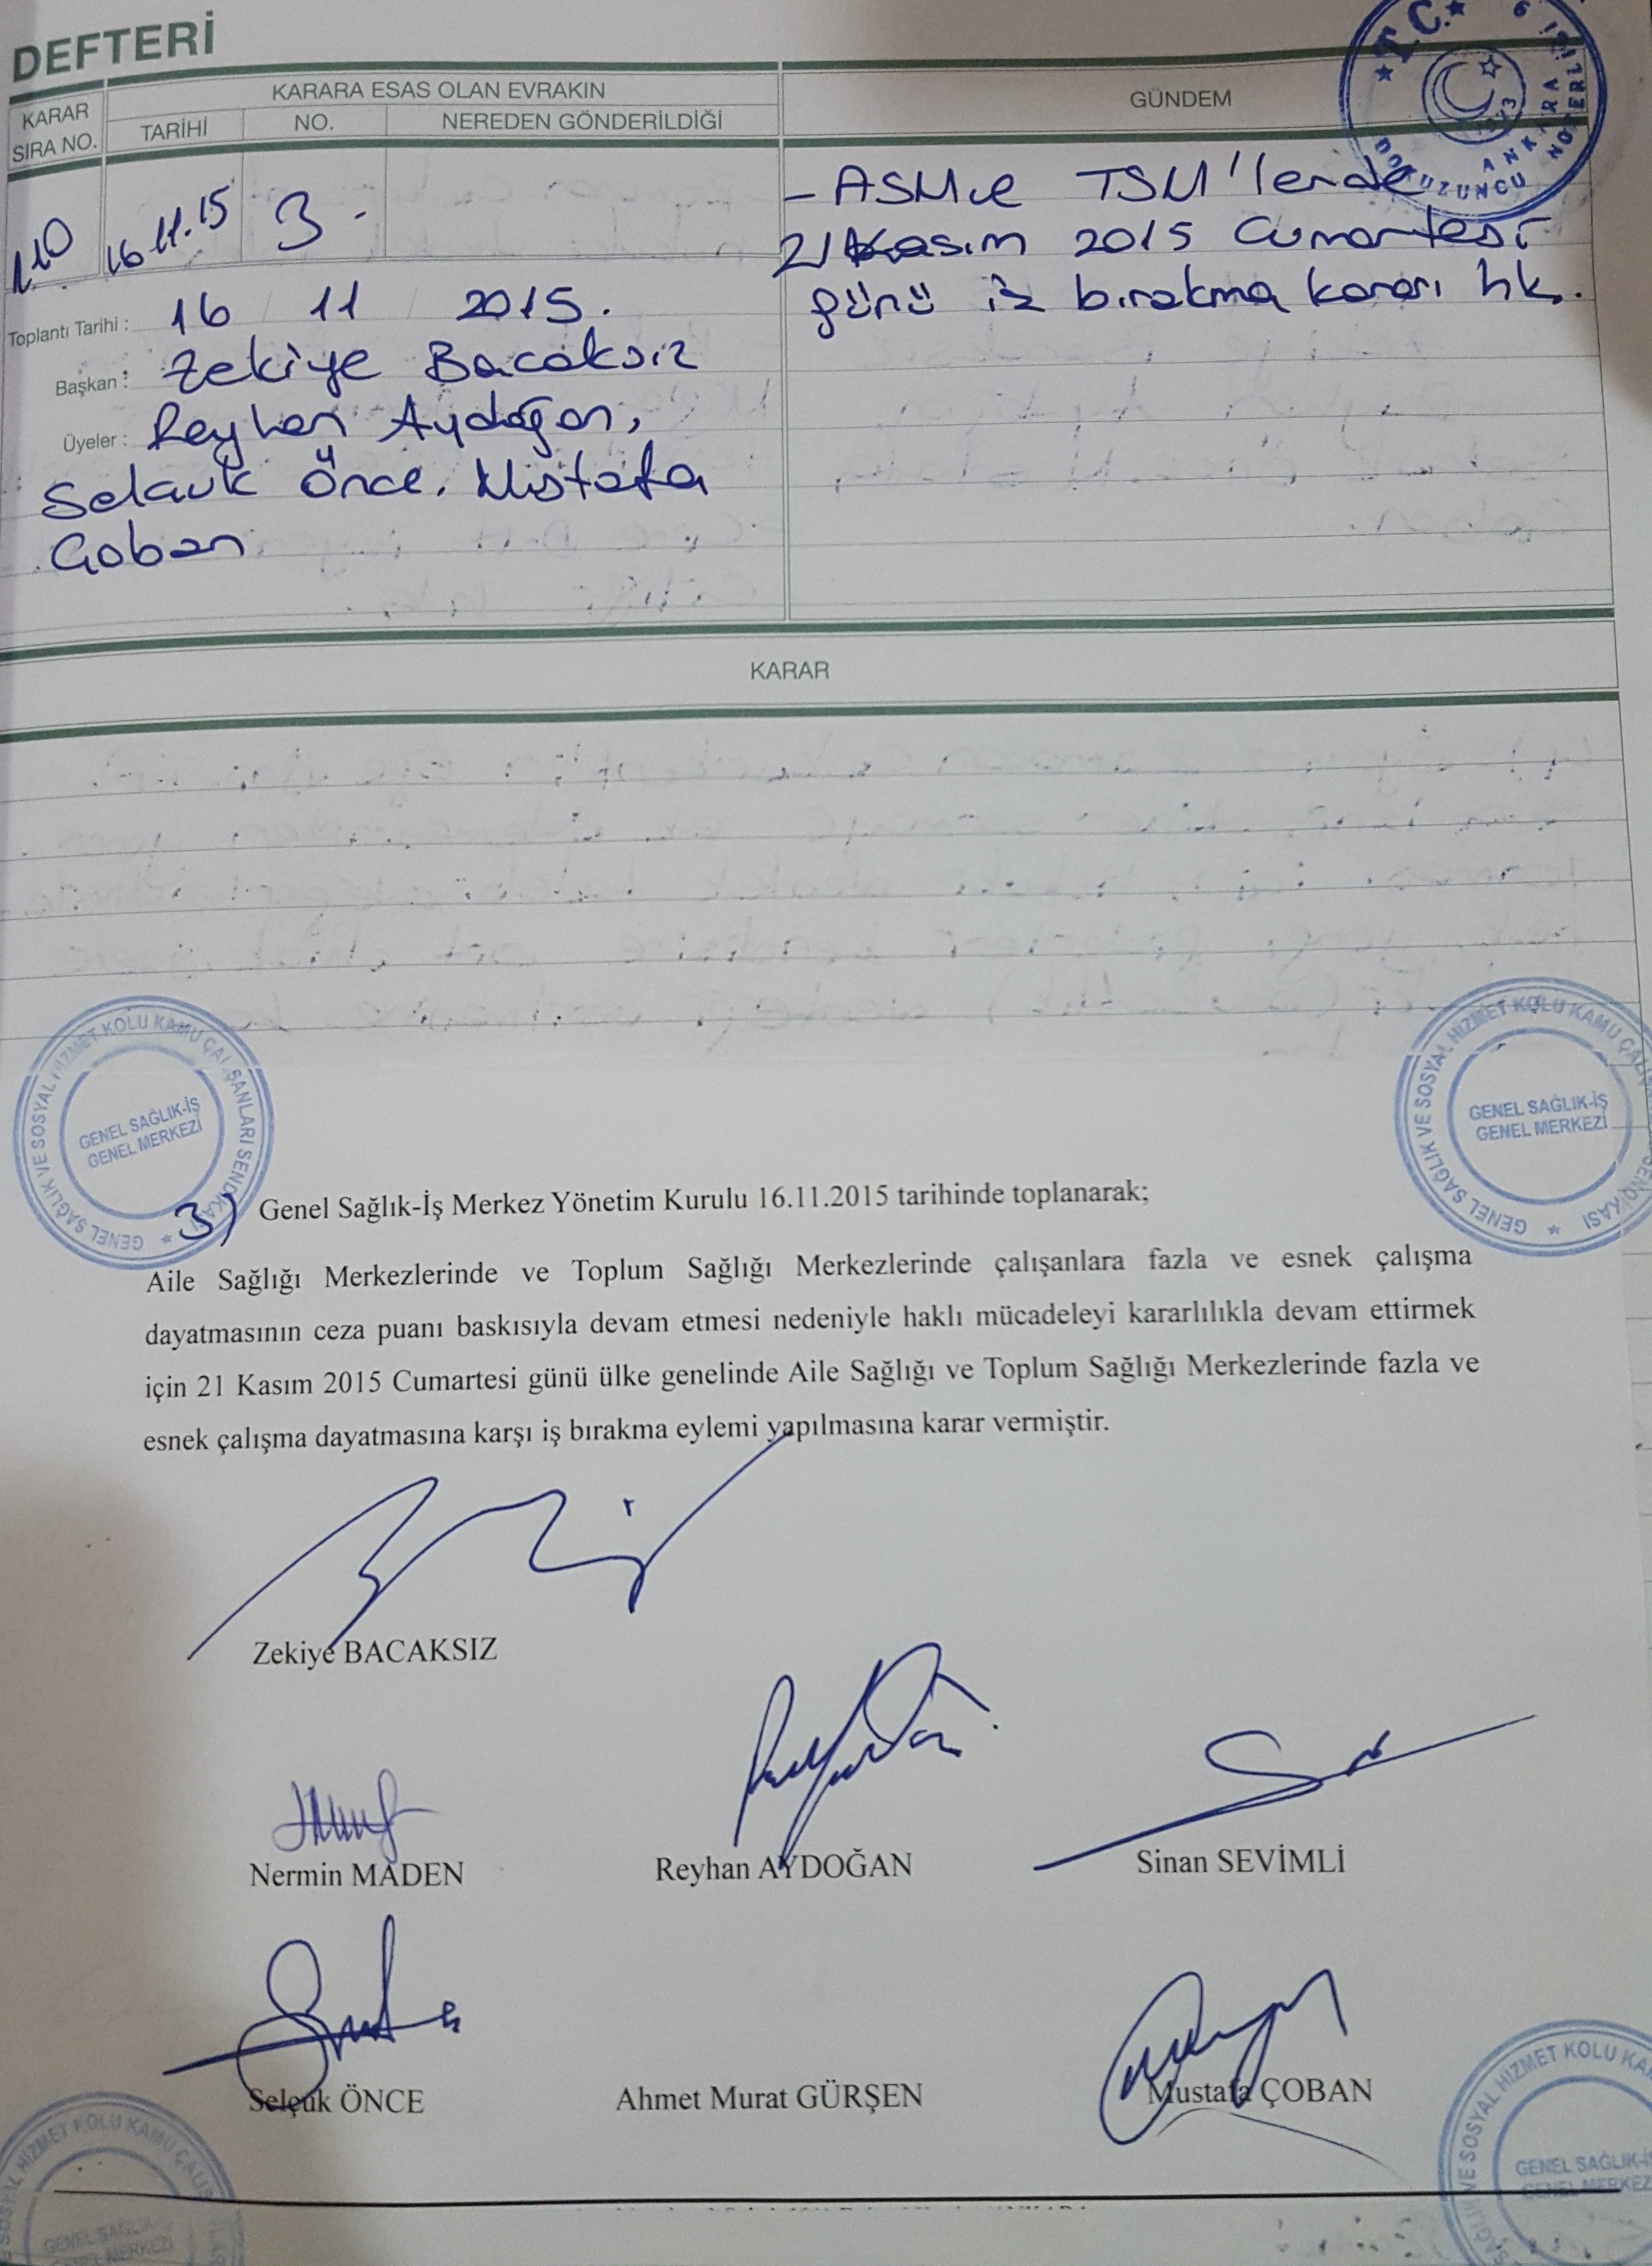 DEFTERİ
KARAR
SIRA NO.
KARARA ESAS OLAN EVRAKIN
TARİHİ
NO.
NEREDEN GÖNDERİLDİĞİ
GÜNDEM
T.C.
ANKARA
DOKUZUNCU
NOTERLİĞİ
110
16.11.15
3.
- ASM ve TSM'lerde
21 Kasım 2015 Cumartesi
günü iş bırakma kararı hk.
Toplantı Tarihi : 16 / 11 / 2015.
Başkan : Zekiye Bacaksız
Üyeler : Reyhan Aydoğan,
Selçuk Önce, Mustafa
Çoban
KARAR
GENEL SAĞLIK VE SOSYAL HİZMET KOLU KAMU ÇALIŞANLARI SENDİKASI
GENEL SAĞLIK-İŞ
GENEL MERKEZİ
GENEL SAĞLIK VE SOSYAL HİZMET KOLU KAMU
SENDİKASI
GENEL SAĞLIK-İŞ
GENEL MERKEZİ
3) Genel Sağlık-İş Merkez Yönetim Kurulu 16.11.2015 tarihinde toplanarak;
Aile Sağlığı Merkezlerinde ve Toplum Sağlığı Merkezlerinde çalışanlara fazla ve esnek çalışma
dayatmasının ceza puanı baskısıyla devam etmesi nedeniyle haklı mücadeleyi kararlılıkla devam ettirmek
için 21 Kasım 2015 Cumartesi günü ülke genelinde Aile Sağlığı ve Toplum Sağlığı Merkezlerinde fazla ve
esnek çalışma dayatmasına karşı iş bırakma eylemi yapılmasına karar vermiştir.
Zekiye BACAKSIZ
Nermin MADEN
Reyhan AYDOĞAN
Sinan SEVİMLİ
Selçuk ÖNCE
Ahmet Murat GÜRŞEN
Mustafa ÇOBAN
SOSYAL HİZMET KOLU KAMU
GENEL SAĞLIK
GENEL MERKEZİ
SAĞLIK VE SOSYAL HİZMET KOLU
GENEL SAĞLIK-İ
GENEL MERKEZ